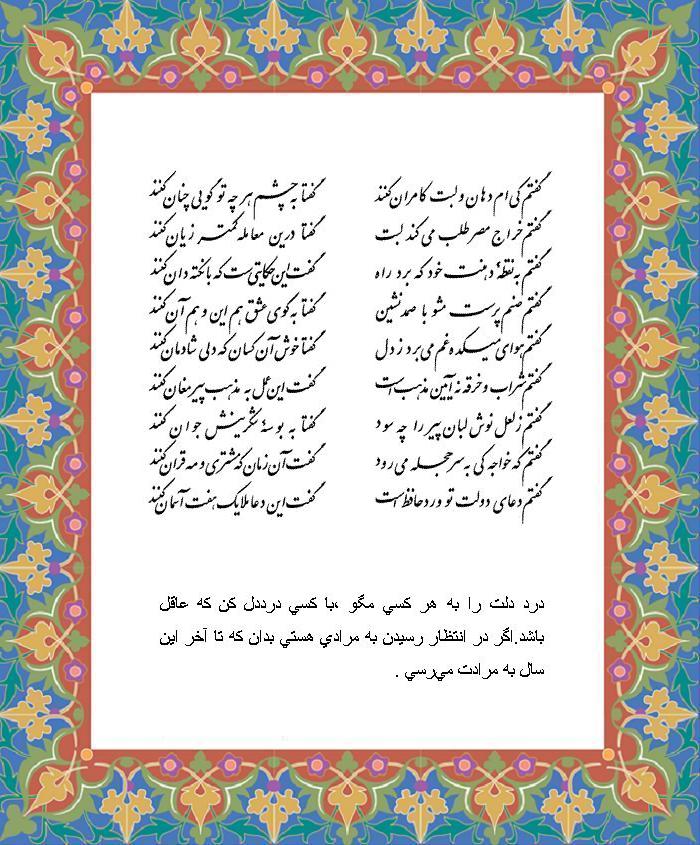 گفتم کی ام دهان و لبت کامران کنند گفتا به چشم هر چه تو گویی چنان کنند
گفتم خراج مصر طلب می کند لبت گفتا درین معامله کمتر زیان کنند
گفتم به نقطهٔ دهنت خود که برد راه گفت این حکایتی ست که با نکته دان کنند
گفتم صنم پرست مشو با صمد نشین گفتا به کوی عشق هم این و هم آن کنند
گفتم هوای میکده غم می برد ز دل گفتا خوش آن کسان که دلی شادمان کنند
گفتم شراب و خرقه نه آیین مذهب است گفت این عمل به مذهب پیر مغان کنند
گفتم ز لعل نوش لبان پیر را چه سود گفتا به بوسهٔ شکرینش جوان کنند
گفتم که خواجه کی به سر حجله می رود گفت آن زمان که مشتری و مه قران کنند
گفتم دعای دولت تو ورد حافظ است گفت این دعا ملایک هفت آسمان کنند
درد دلت را به هر كسي مگو ،با كسي درددل كن كه عاقل
باشد.اگر در انتظار رسيدن به مرادي هستي بدان كه تا آخر اين
سال به مرادت مي‌رسي .